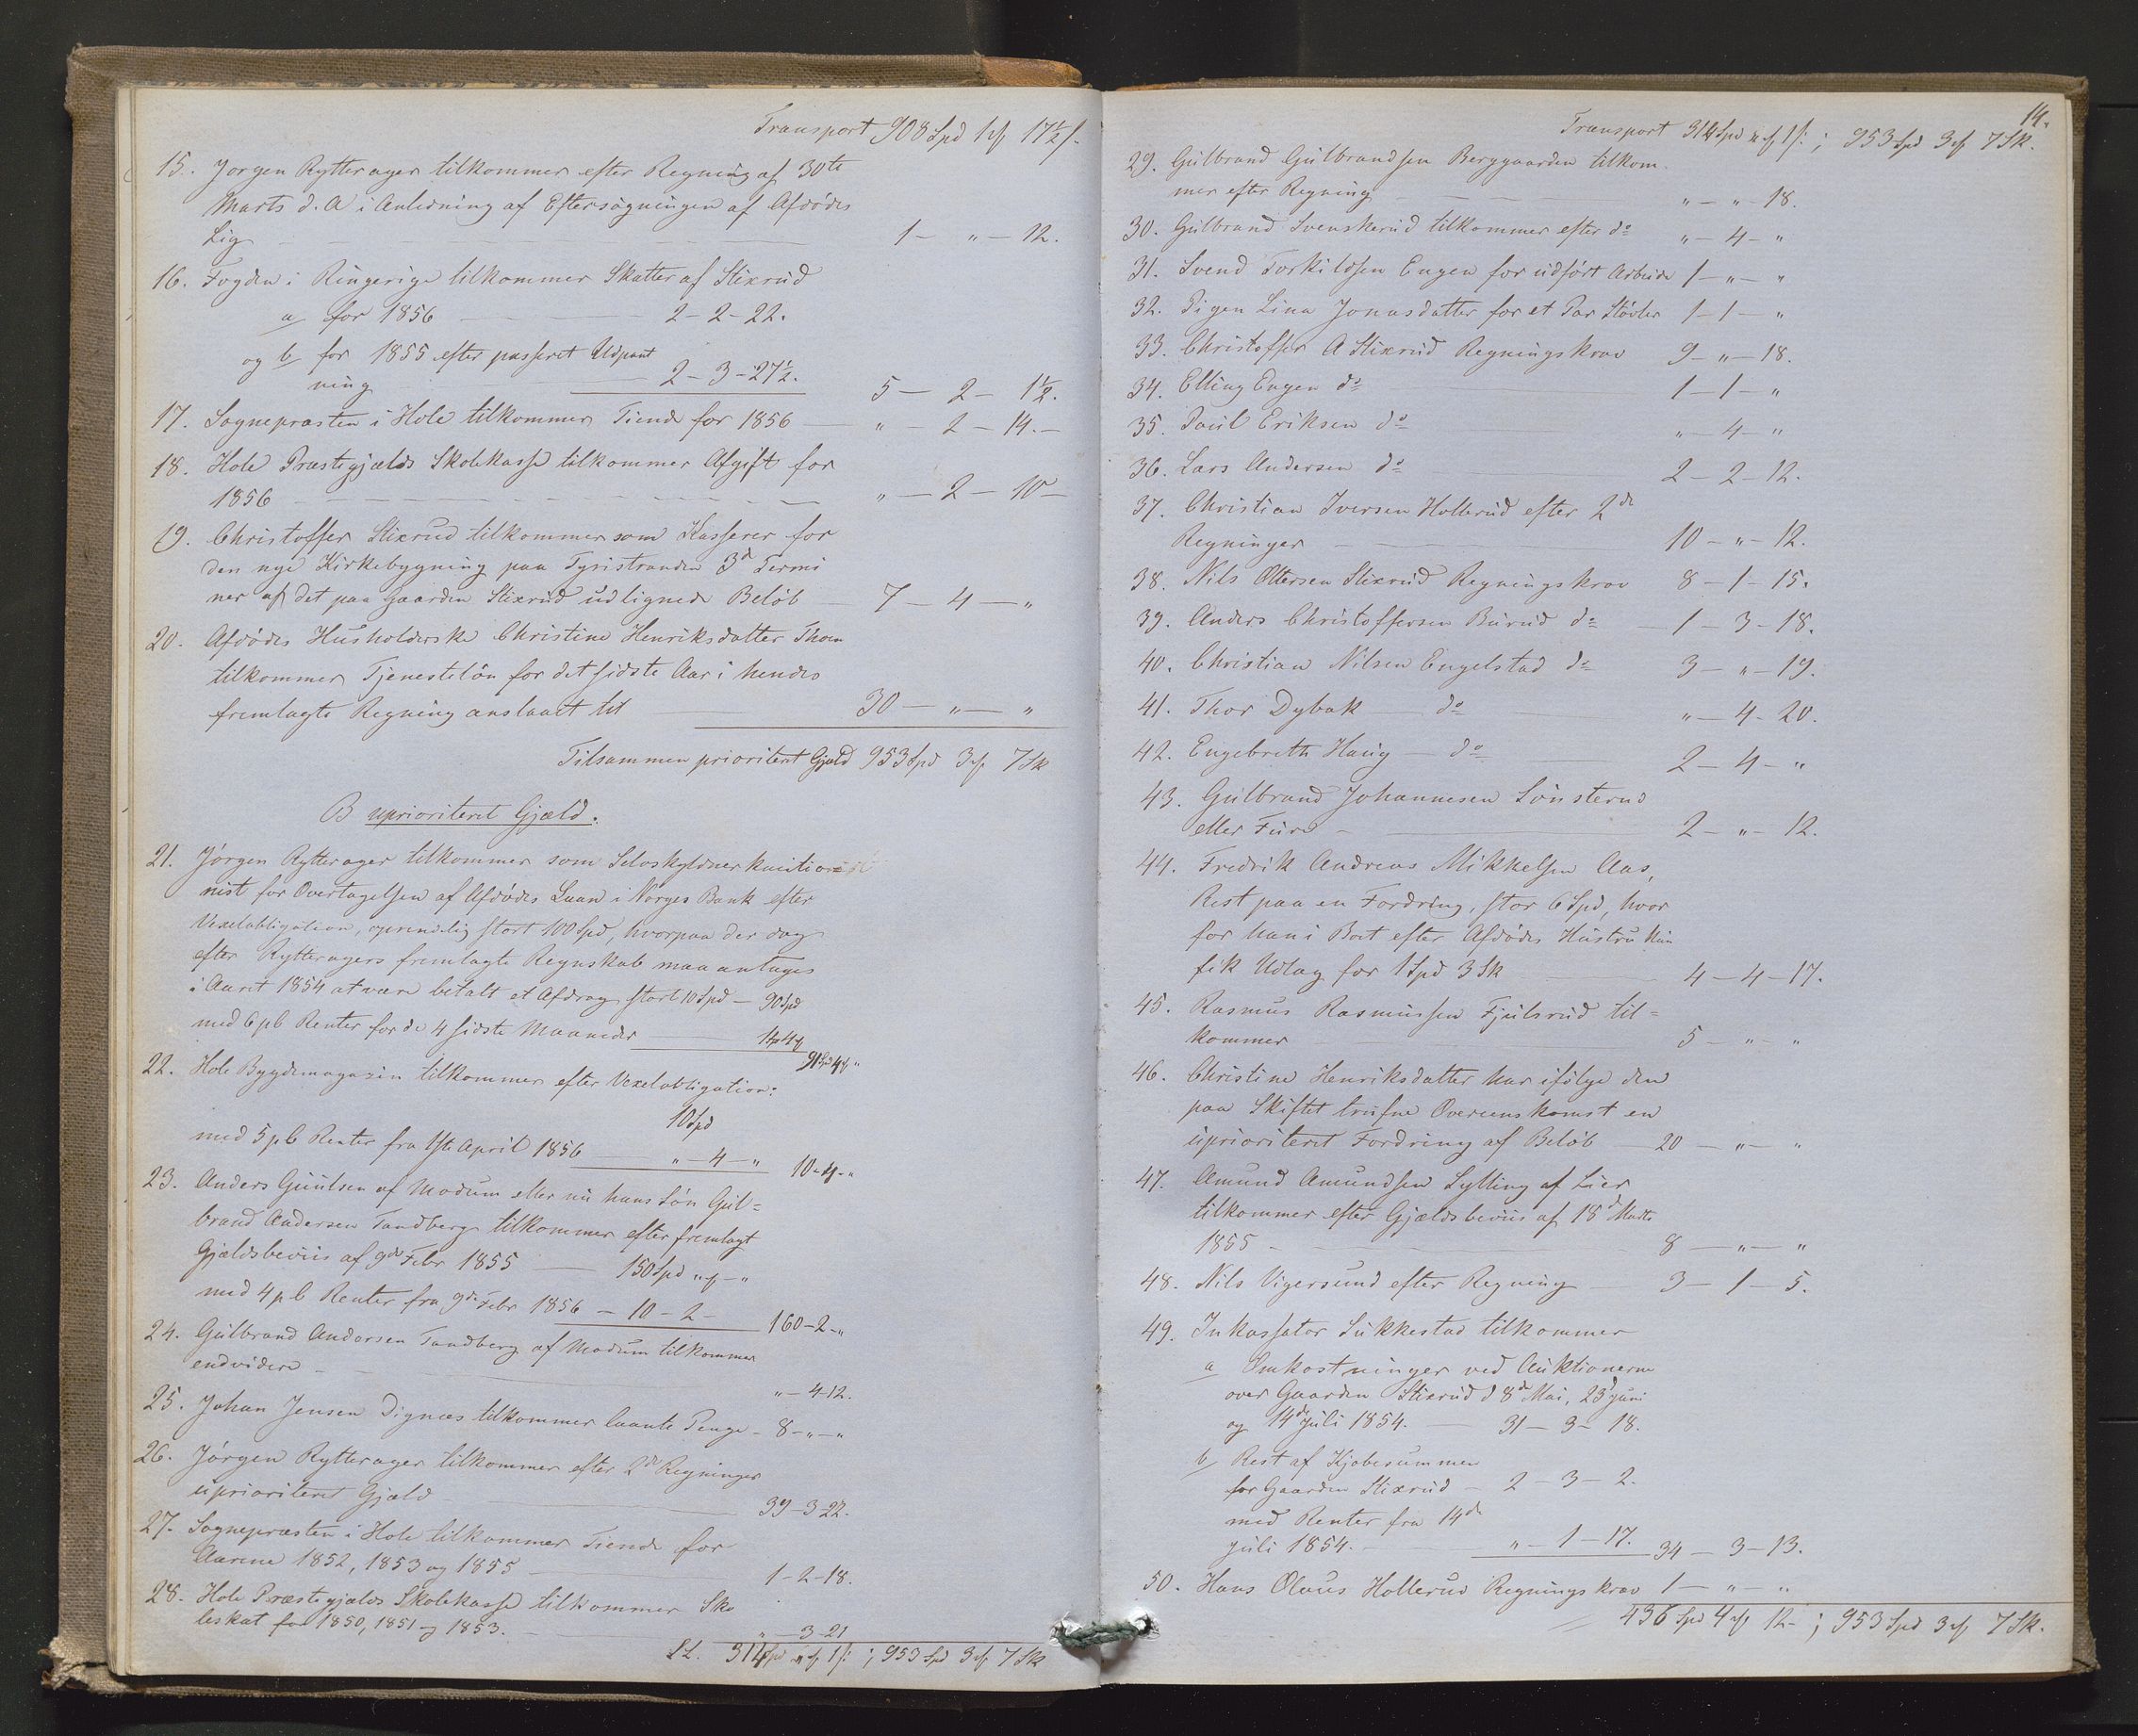 Transport 908 Spd 1 ⸓ 17½ s.
15. Jørgen Rytterager tilkommer efter Regning af 30te
Marts d. A i Anledning af Eftersøgningen af Afdødes
Lig 1 – " – 12.
16. Fogden i Ringerige tilkommer Skatter af Stixrud
a/ for 1856 2 – 2 – 22.
og b/ for 1855 efter passeret Udpant
ning 2 – 3 – 27½. 5 – 2 – 1½.
17. Sognepræsten i Hole tilkommer Tiende for 1856 " – 2 – 14. –
18. Hole Præstegjælds Skolekasse tilkommer Afgift for
1856 " – 2 – 10 –
19. Christoffer Stixrud tilkommer som Kasserer for
den nye Kirkebygning paa Tyristranden 3de Termi
ner af det paa Gaarden Stixrud udlignede Beløb 7 – 4 – "
20. Afdødes Husholderske Christine Henriksdatter Thoen
tilkommer Tjenesteløn for det sidste Aar i hendes
fremlagte Regning anslaaet til 30 – " – "
Tilsammen prioriteret Gjæld 953 Spd 3 ⸓ 7 Sk
B uprioriteret Gjæld.
21. Jørgen Rytterager tilkommer som Selvskyldnerkautio
nist for Overtagelsen af Afdødes Laan i Norges Bank efter
Vexelobligation, oprindelig stort 100 Spd, hvorpaa der dog
efter Rytteragers fremlagte Regnskab maa antages
i Aaret 1854 at være betalt et Afdrag stort 10 Spd – 90 Spd
med 6 pC Renter for de 4 sidste Maaneder 1 Sp 4 ⸓
91 Spd 4 ⸓ "
22. Hole Bygdemagasin tilkommer efter Vexelobligation:
10 Spd
med 5 pC Renter fra 1ste April 1856 " – 4 – " 10 – 4 – "
23. Anders Guulsen af Modum eller nu hans Søn Gul=
brand Andersen Tandberg tilkommer efter fremlagt
Gjældsbeviis af 9de Febr 1855 150 Spd " ⸓ – "
med 4 pC Renter fra 9de Febr 1856 – 10 – 2 – 160 – 2 – "
24. Gulbrand Andersen Tandberg af Modum tilkommer
endvidere " – 4 – 12.
25. Johan Jensen Dignæs tilkommer laante Penge – 8 – " – "
26. Jørgen Rytterager tilkommer efter 2de Regninger
uprioriteret Gjæld 39 – 3 – 22.
27. Sognepræsten i Hole tilkommer Tiende for
Aarene 1852, 1853 og 1855 1 – 2 – 18.
28. Hole Præstegjælds Skolekasse tilkommer Sko
leskat for 1850, 1851 og 1853. " – 3 – 21
Lt. 314 Spd " ⸓ 1 s: ; 953 Spd 3 ⸓ 7 Sk
14.
Transport 314 Spd " ⸓ 1 s: ; 953 Spd 3 ⸓ 7 Sk.
29. Gulbrand Gulbrandsen Berggaarden tilkom
mer efter Regning " – " – 18.
30. Gulbrand Svenskerud tilkommer efter do " – 4 – "
31. Svend Torkildsen Engen for udført Arbeide 1 – " – "
32. Pigen Lina Jonasdatter for et Par Støvler 1 – 1 – "
33. Christoffer A Stixrud Regningskrav 9 – " – 18.
34. Elling Engen do 1 – 1 – "
35. Paul Eriksen do " – 4 – "
36. Lars Andersen do 2 – 2 – 12.
37. Christian Iversen Hollerud efter 2de
Regninger 10 – " – 12.
38. Nils Ottersen Stixrud Regningskrav 8 – 1 – 15.
39. Anders Christoffersen Burud do 1 – 3 – 18.
40. Christian Nilsen Engelstad do 3 – " – 19.
41. Thor Dybak do " – 4 – 20.
42. Engebreth Haug do 2 – 4 – "
43. Gulbrand Johannesen Sønsterud
eller Furu 2 – " – 12.
44. Fredrik Andreas Mikkelsen Aas,
Rest paa en Fordring, stor 6 Spd, hvor
for han i Boet efter Afdødes Hustru kun
fik Udlæg for 1 Spd 3 Sk 4 – 4 – 17.
45. Rasmus Rasmussen Fjulsrud til=
kommer 5 – " – "
46. Christine Henriksdatter har ifølge den
paa Skiftet trufne Overeenskomst en
uprioriteret Fordring af Beløb 20 – " – "
47. Amund Amundsen Sylling af Lier
tilkommer efter Gjældsbeviis af 18de Marts
1855 8 – " – "
48. Nils Vigersund efter Regning 3 – 1 – 5.
49. Inkassator Sukkestad tilkommer
a Omkostninger ved Auktionerne
over Gaarden Stixrud d 8de Mai, 23de Juni
og 14de Juli 1854. 31 – 3 – 18.
b/ Rest af Kjøbesummen
for Gaarden Stixrud – 2 – 3 – 2.
med Renter fra 14de
Juli 1854. " – 1 – 17. 34 – 3 – 13.
50. Hans Olaus Hollerud Regningskrav 1 – " – "
436 Spd 4 ⸓ 12 – ; 953 Spd 3 ⸓ 7 Sk.